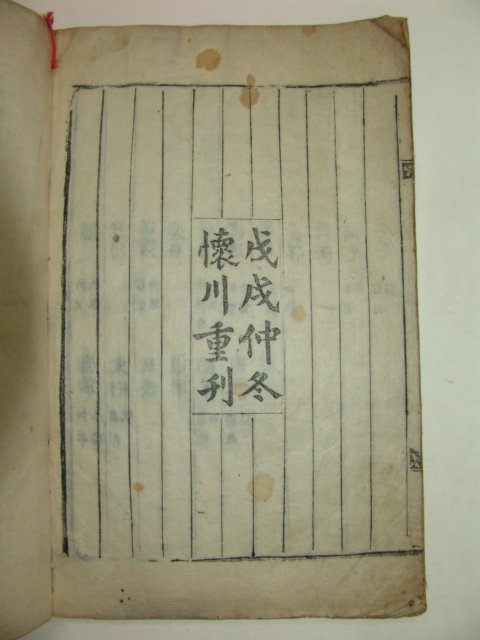 戊戌仲冬
懷川重刊